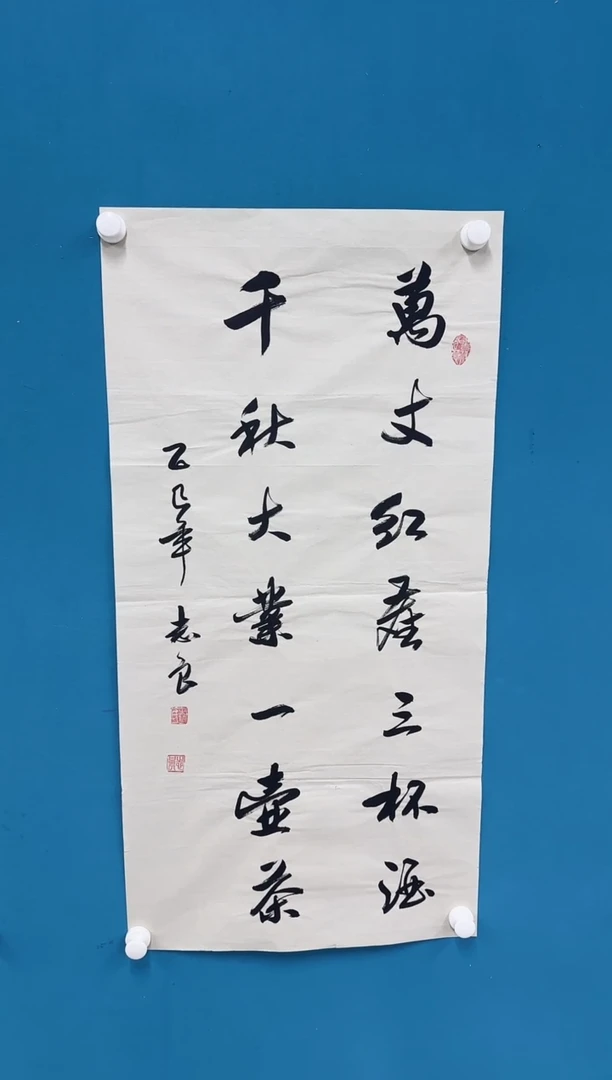 萬丈红塵三杯酒
千秋大業一壺茶
乙巳年 志良